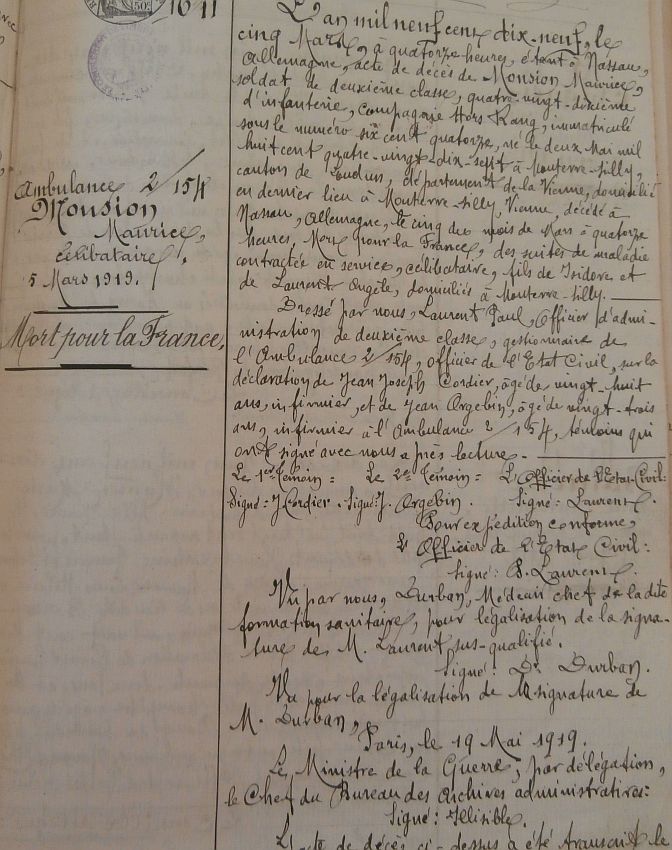 50c
1641
Ambulance 2/154
Monsion
Maurice,
célibataire.
5 Mars 1919.
Mort pour la France.
L'an mil neuf cent dix-neuf, le
cinq Mars, à quatorze heures, étant à Nassau,
Allemagne, acte de décès de Monsion Maurice,
soldat de deuxième classe, quatre-vingt-dixième
d'infanterie, compagnie Hors Rang, immatriculé
sous le numéro six cent quatorze, né le deux Mai mil
huit cent quatre-vingt-dix-sept à Mouterre-Silly,
canton de Loudun, département de la Vienne, domicilié
en dernier lieu à Mouterre-Silly, Vienne, décédé à
Nassau, Allemagne, le cinq du mois de Mars à quatorze
heures, Mort pour la France, des suites de maladie
contractée en service, célibataire, fils de Isidore et
de Laurent Angèle, domiciliés à Mouterre-Silly.
Dressé par nous, Laurent Paul, Officier d'admi-
nistration de deuxième classe, gestionnaire de
l'Ambulance 2/154, officier de l'Etat Civil, sur la
déclaration de Jean Joseph Cordier, âgé de vingt-huit
ans, infirmier, et de Jean Orgebin, âgé de vingt-trois
ans, infirmier à l'Ambulance 2/154, témoins qui
ont signé avec nous après lecture.
Le 1er Témoin: Le 2e Témoin: L'Officier de l'Etat-Civil:
Signé: J. Cordier. Signé: J. Orgebin. Signé: Laurent.
Pour expédition conforme,
L'Officier de l'Etat Civil:
Signé: P. Laurent.
Vu par nous, Durban, Médecin chef de la dite
formation sanitaire, pour légalisation de la signa-
ture de M. Laurent sus-qualifié.
Signé: Dr Durban.
Vu pour la légalisation de la signature de
M. Durban,
Paris, le 19 Mai 1919.
Le Ministre de la Guerre, par délégation,
le Chef du Bureau des Archives administratives:
Signé: Illisible.
L'acte de décès ci-dessus a été transcrit le